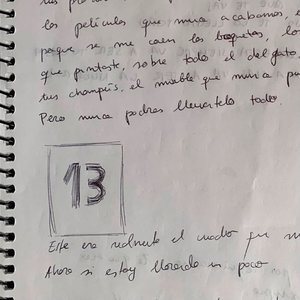 las películas que mira acabamos, e
paque se me caen los boquetes, lo
que pintaste, sobre todo el del gato,
tus champús, el mueble que mira p
Pero nunca podras llevartelo todo.
13
Este era realmente el cuadro que m
Ahora si estoy llorando un poco